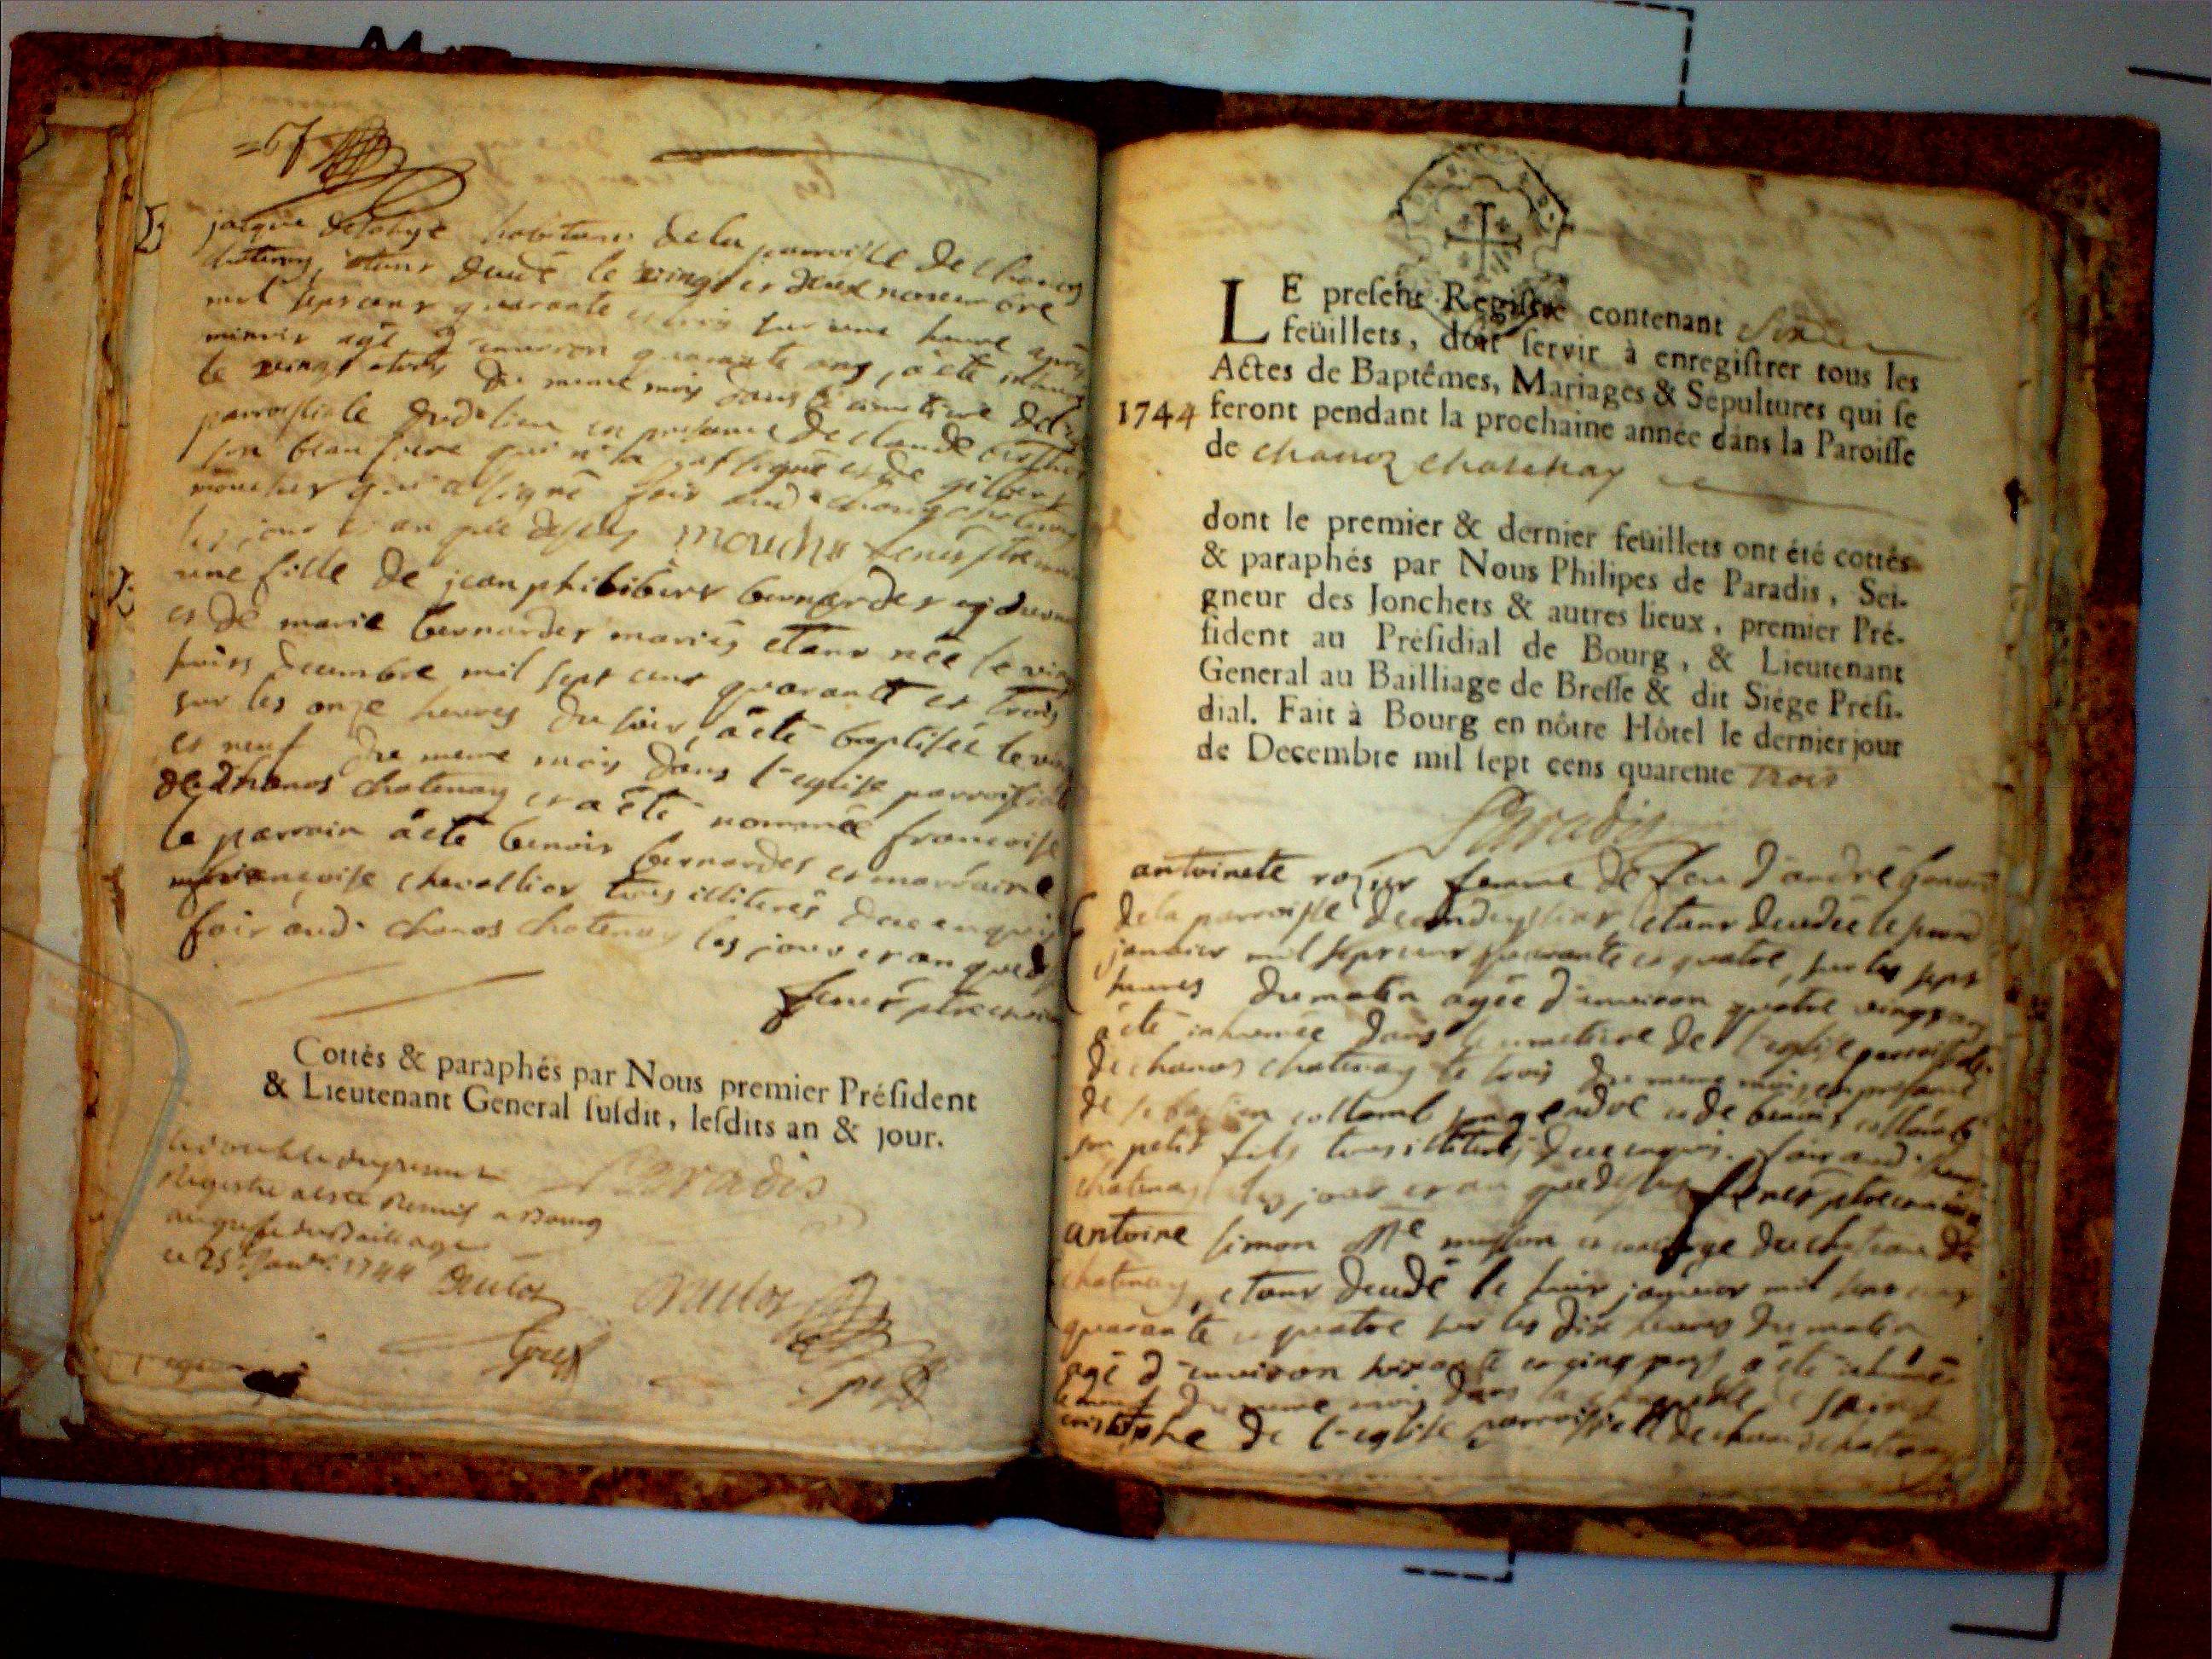 jacque habitant de la parroisse de chanoz
chatenay, etant decedé le vingt et deux novembre
mil sept cent quarante et trois sur une heure après
minuit agé d'environ quarante ans, a été inhumé
le vingt et trois du meme mois dans le cimetiere de
parroissiale dud. lieu en presence de claude
son beau frere qui n'a pas signé et de
moucher qui a signé fait aud. chanoz chatenay
les jour et an que dessus moucher
une fille de jean philibert bernardet
et de marie bernardet mariés etant née le vingt
huit decembre mil sept cent quarante et trois
sur les onze heures du soir, a été baptisée le vingt
et neuf du meme mois dans l'eglise parroissiale
de chanos chatenay et a été nommée francoise
le parrain a été benoit bernardet et marraine
francoise chevallier tous illiterés de ce enquis
fait aud. chanos chatenay les jour et an que dessus
Cottés & paraphés par Nous premier Préſident
& Lieutenant General ſuſdit, leſdits an & jour.
le double du present
Registre a esté Remis a Bourg
au greffe du Bailliage
ce 25e Janv. 1744
Paradis
LE preſent Regiſtre contenant Six
feüillets, doit ſervir à enregiſtrer tous les
Actes de Baptêmes, Mariages & Sépultures qui ſe
1744 feront pendant la prochaine année dans la Paroiſſe
de chanoz chatenay
dont le premier & dernier feüillets ont été cottés
& paraphés par Nous Philipes de Paradis, Sei-
gneur des Jonchets & autres lieux, premier Pré-
ſident au Préſidial de Bourg, & Lieutenant
General au Bailliage de Breſſe & dit Siége Préſi-
dial. Fait à Bourg en nôtre Hôtel le dernier jour
de Decembre mil ſept cens quarente trois
Paradis
antoinete rozier femme de feu d'andré
de la parroisse de etant decedée le
janvier mil sept cent quarante et quatre, sur les sept
heures du matin agée d'environ quatre vingt ans
a été inhumée dans le cimetiere de l'eglise parroissiale
de chanos chatenay le trois du meme mois en presence
de sebastien collomb son gendre et de benoit collomb
son petit fils tous illiterés de ce enquis. fait aud.
chatenay les jour et an que dessus
antoine simon Me masson et concierge du chateau de
chatenay, etant decedé le huit janvier mil sept cent
quarante et quatre sur les dix heures du matin
agé d'environ soixante et cinq ans a été inhumé
le neuf du meme mois dans la chapelle saint
cristophe de l'eglise parroissiale de chanos chatenay